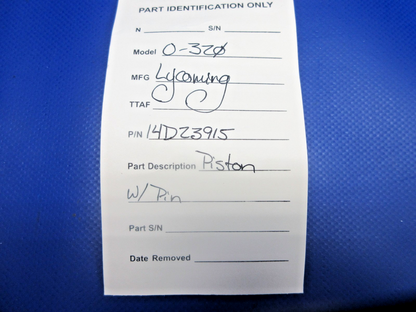 PART IDENTIFICATION ONLY
N S/N
Model O-320
MFG Lycoming
TTAF
P/N 14D23915
Part Description Piston
W/ Pin
Part S/N
Date Removed